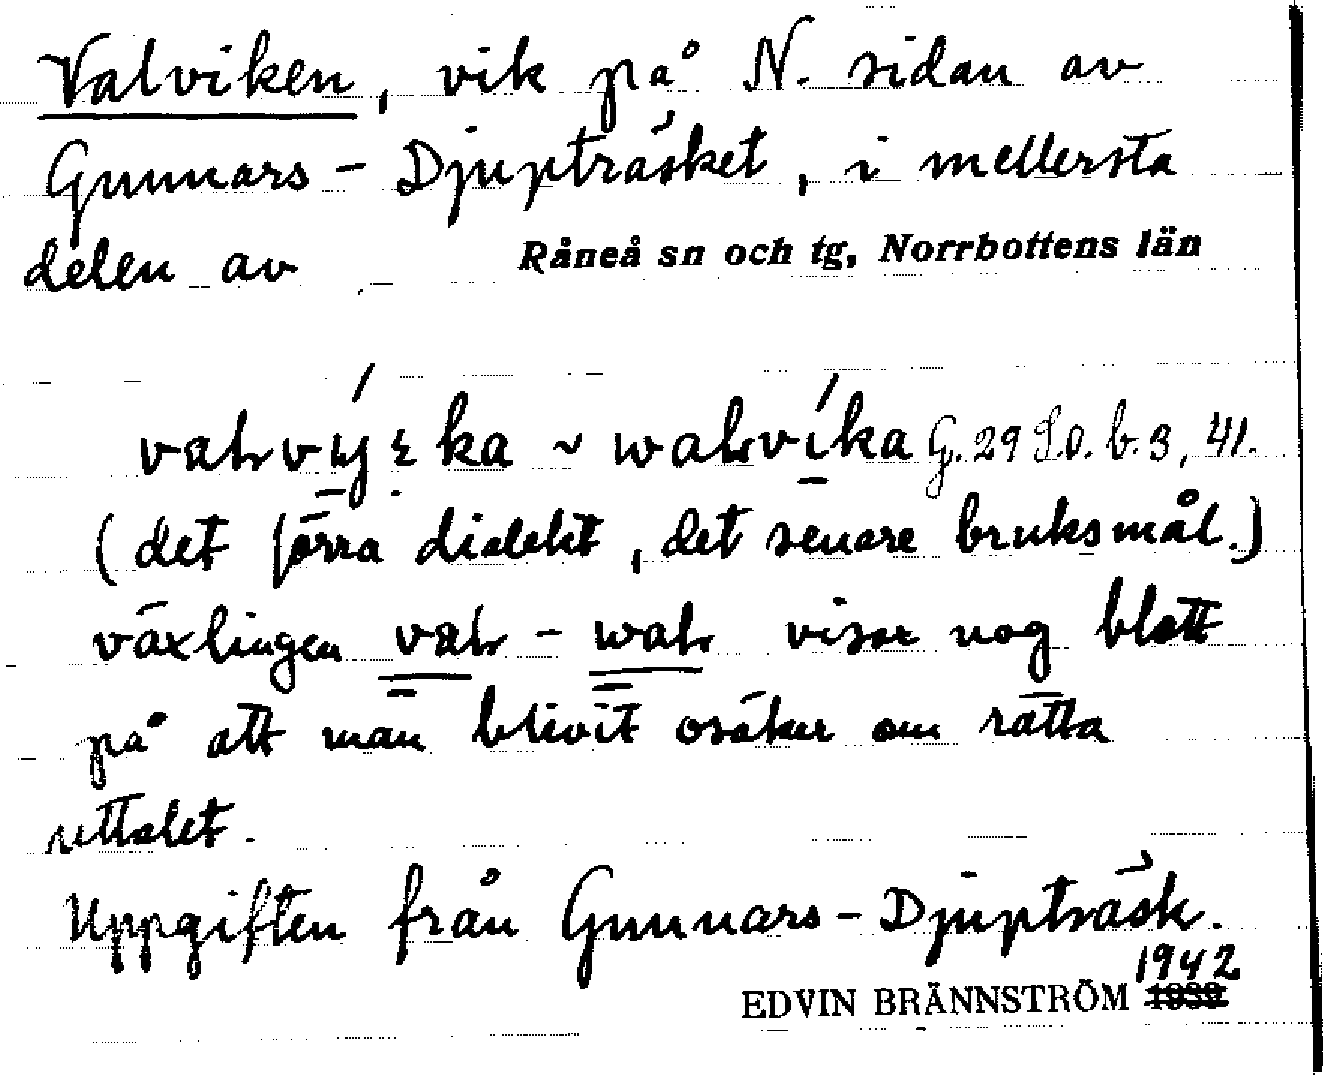 Valviken, vik på N. sidan av
Gunnars-Djupträsket, i mellersta
delen av Råneå sn och tg, Norrbottens län
G. 29 So. b. 3, 41.
(det förra dialekt, det senare bruksmål.)
växlingen visar nog blott
på att man blivit osäker om rätta
uttalet.
Uppgiften från Gunnars-Djupträsk.
1942
EDVIN BRÄNNSTRÖM 1939